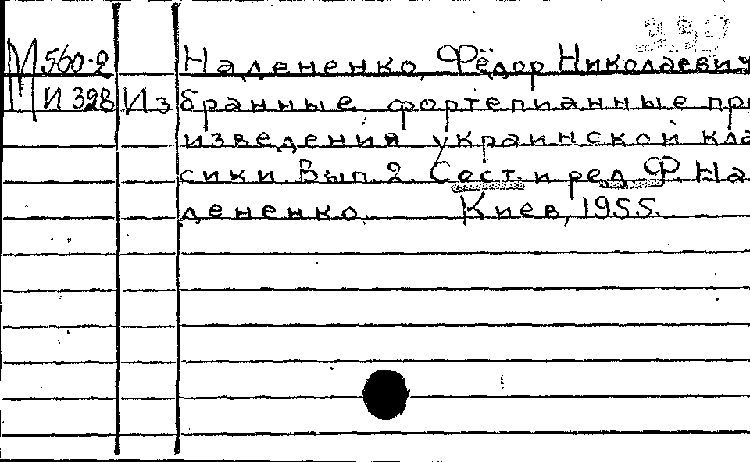 М560-2 Наdененко, Фёдор Николаевич
И 398 Избранные фортепианные про
изведения украинской кла
сики. Вып. 2. Сост. и ред. Ф. На
дененко. Киев, 1955.